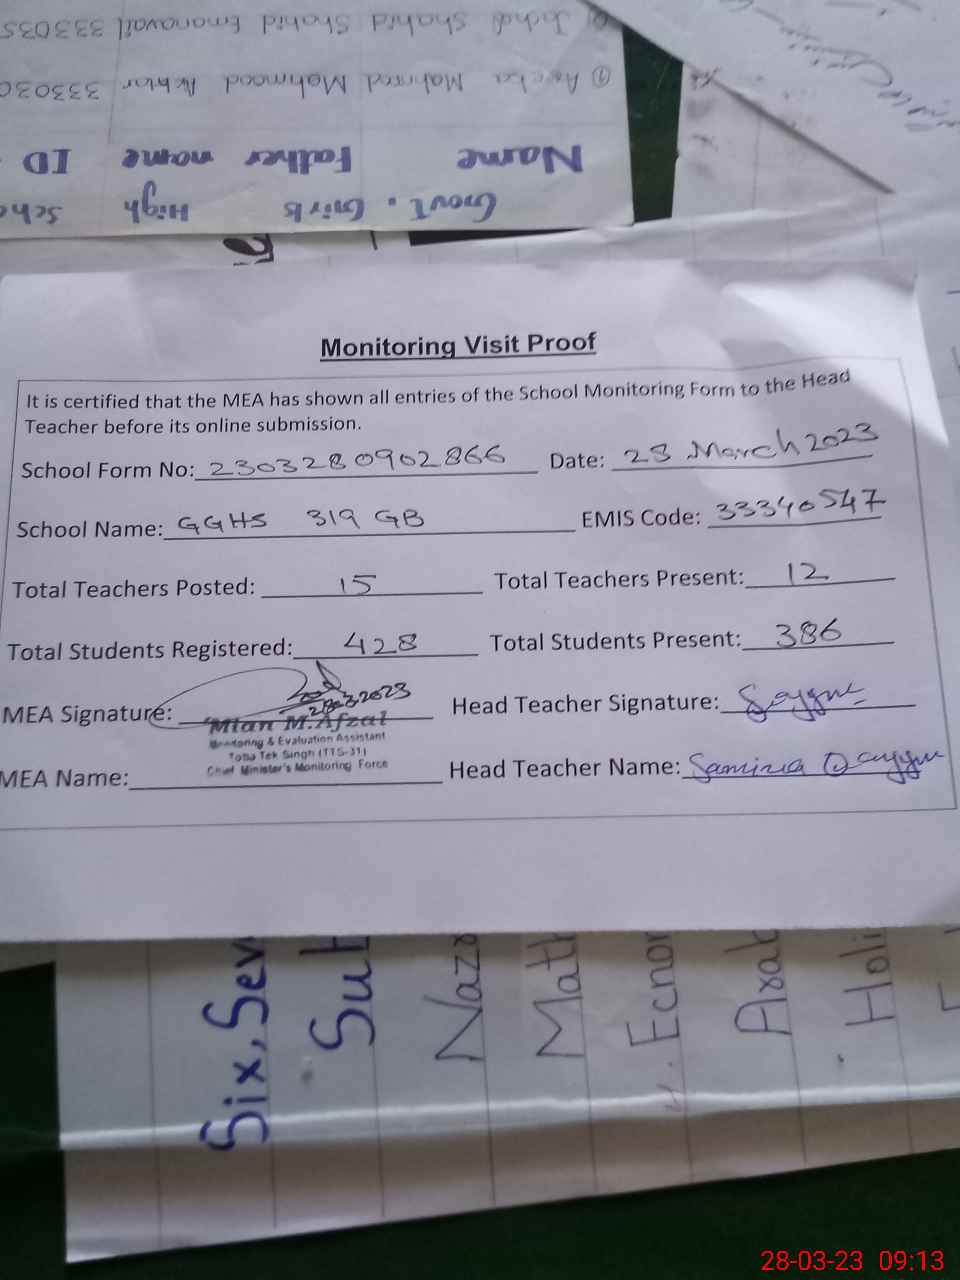 Jochd Shahid Shahid Emanavail 333035
① Mahmood Mahmood Akhtar 333030
Name Father name ID
Govt. Girls High Scho
Monitoring Visit Proof
It is certified that the MEA has shown all entries of the School Monitoring Form to the Head
Teacher before its online submission.
School Form No: 2303280902866 Date: 28 March 2023
School Name: GGHS 319 GB EMIS Code: 33340547
Total Teachers Posted: 15 Total Teachers Present: 12
Total Students Registered: 428 Total Students Present: 386
28.03.2023
MEA Signature: Head Teacher Signature:
Mian M. Afzal
Monitoring & Evaluation Assistant
Toba Tek Singh (TTS-31)
Chief Minister's Monitoring Force
MEA Name: Head Teacher Name: Samina Qayyum
Six, Sev
Sub
Naza
Math
Econo
Arab
Holi
28-03-23 09:13